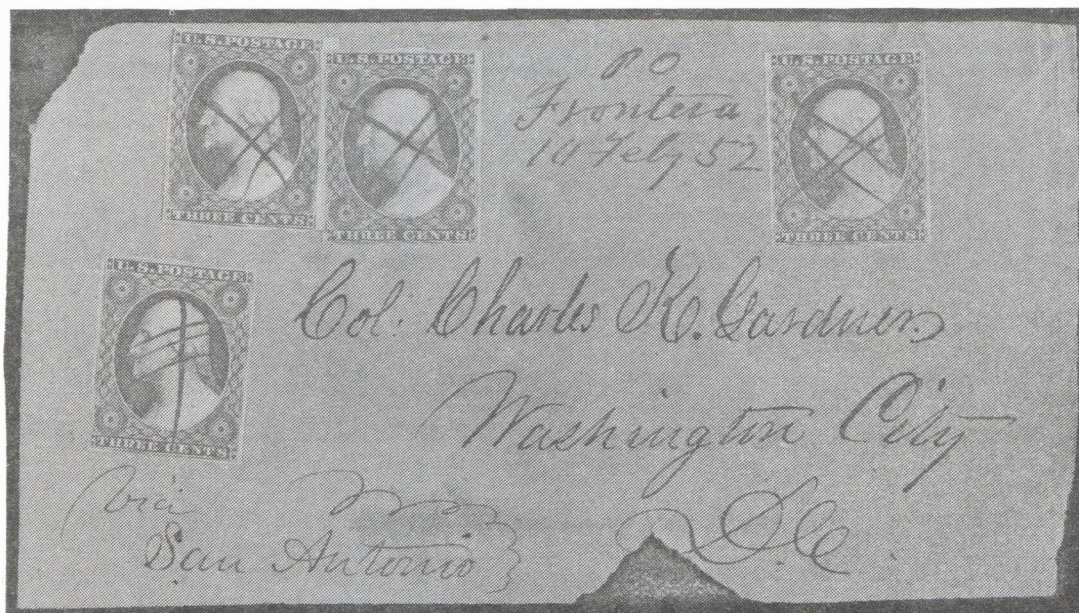 U.S. POSTAGE
THREE CENTS
U.S. POSTAGE
THREE CENTS
P O
Frontera
10 Feby 52
U.S. POSTAGE
THREE CENTS
U.S. POSTAGE
THREE CENTS
Col: Charles K. Gardner
Washington City
D.C.
via
San Antonio